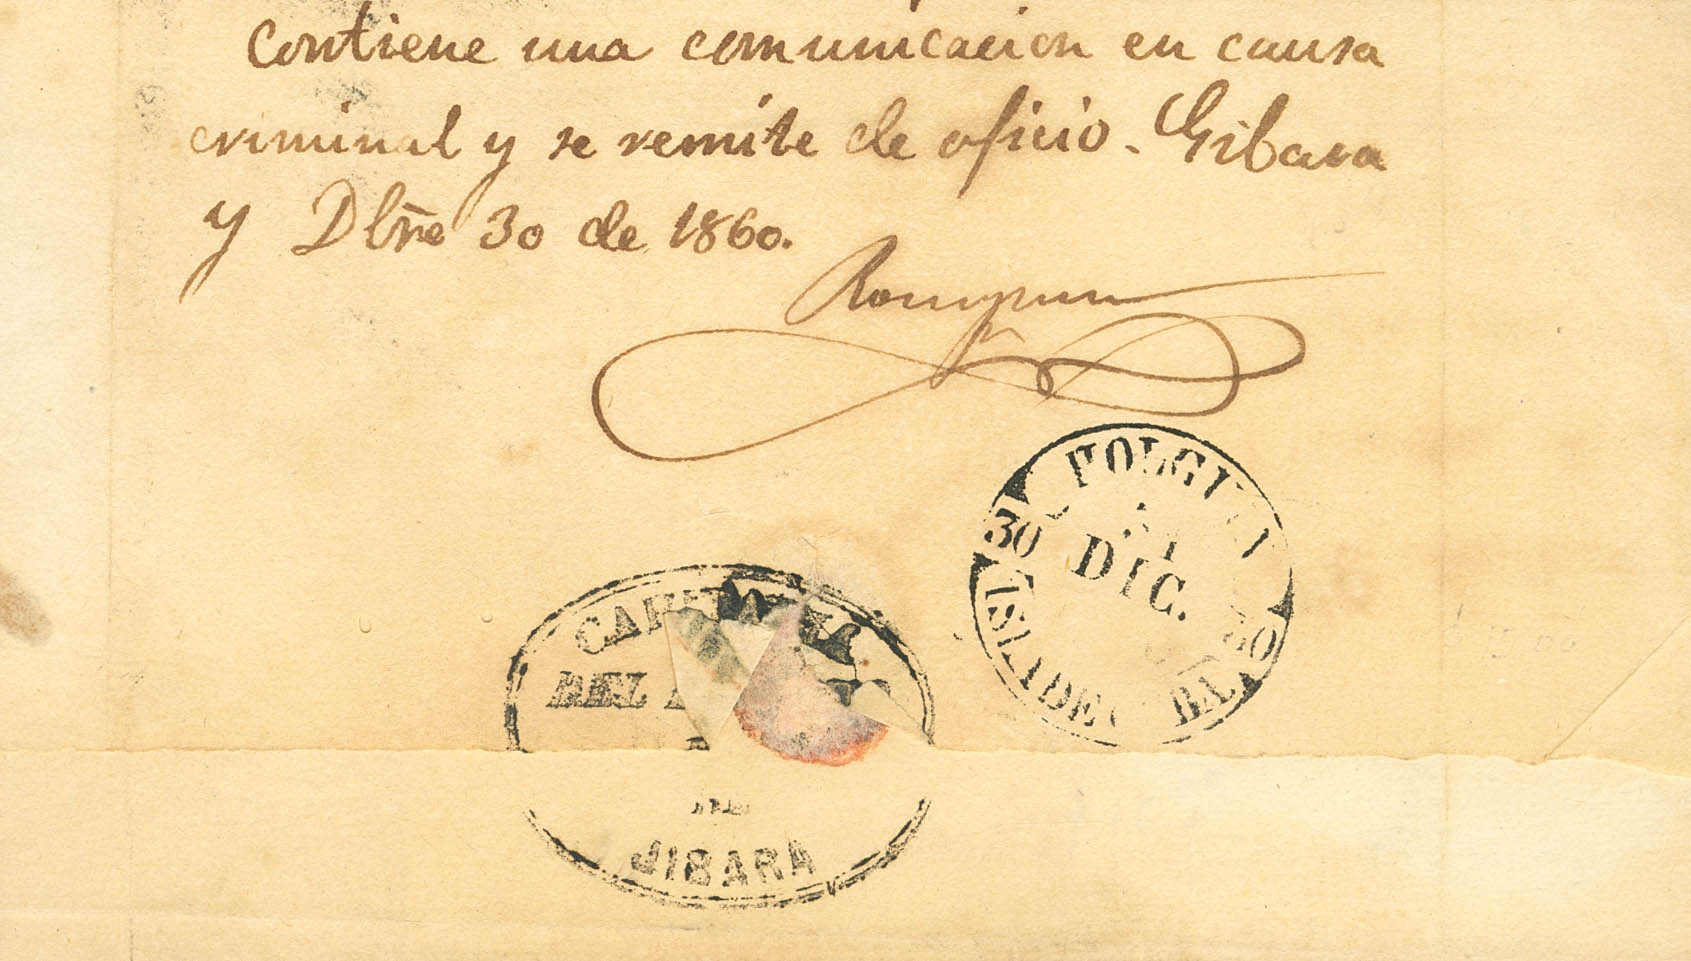 Contiene una comunicacion en causa
criminal y se remite de oficio. Gibara
y Dbre 30 de 1860.
HOLGUIN
30 30
DIC.
ISLA DE CUBA
CAPITANIA
DEL
DE
JIBARA